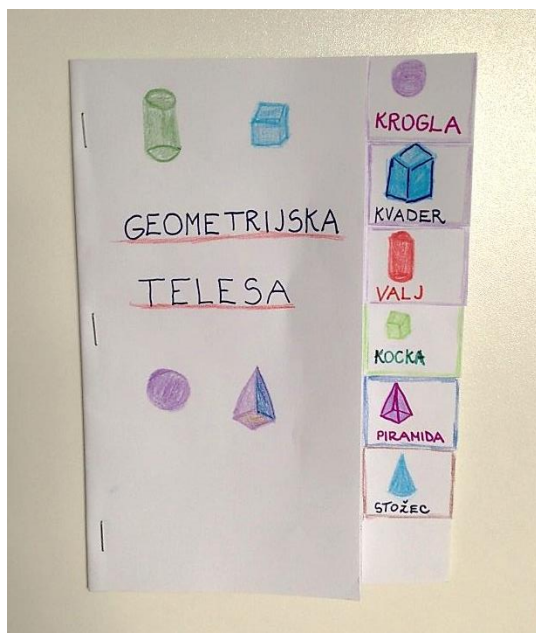 GEOMETRIJSKA
TELESA
KROGLA
KVADER
VALJ
KOCKA
PIRAMIDA
STOŽEC